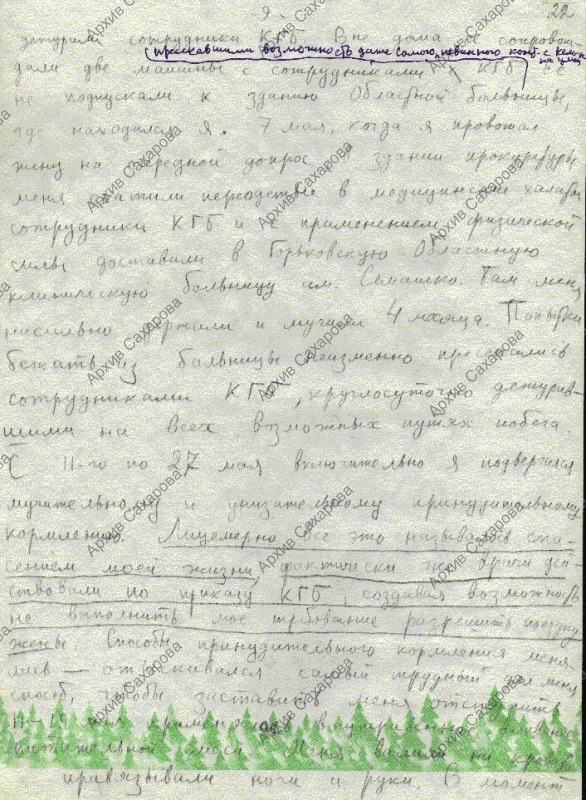 9 22
дежурили сотрудники КГБ. Вне дома ее сопровож-
пресекавшими возможность даже самого невинного конт. с кем-л.
на улице
дали две машины с сотрудниками КГБ. Ее
не подпускали к зданию Областной больницы,
где находился я. 7 мая, когда я провожал
жену на очередной допрос в здании прокуратуры,
меня схватили переодетые в медицинские халаты
сотрудники КГБ и с применением физической
силы доставили в Горьковскую Областную
клиническую больницу им. Семашко. Там меня
насильно держали и мучили 4 месяца. Попытки
бежать из больницы неизменно пресекались
сотрудниками КГБ, круглосуточно дежурив-
шими на всех возможных путях побега.
С 11-го по 27 мая включительно я подвергался
мучительному и унизительному принудительному
кормлению. Лицемерно все это называлось спа-
сением моей жизни, фактически же врачи дей-
ствовали по приказу КГБ, создавая возможность
не выполнить мое требование разрешить поездку
жены. Способы принудительного кормления меня-
лись — отыскивался самый трудный для меня
способ, чтобы заставить меня отступить.
11-15 мая применялось внутривенное вливание
питательной смеси. Меня валили на кровать,
привязывали ноги и руки. В момент
Архив Сахарова